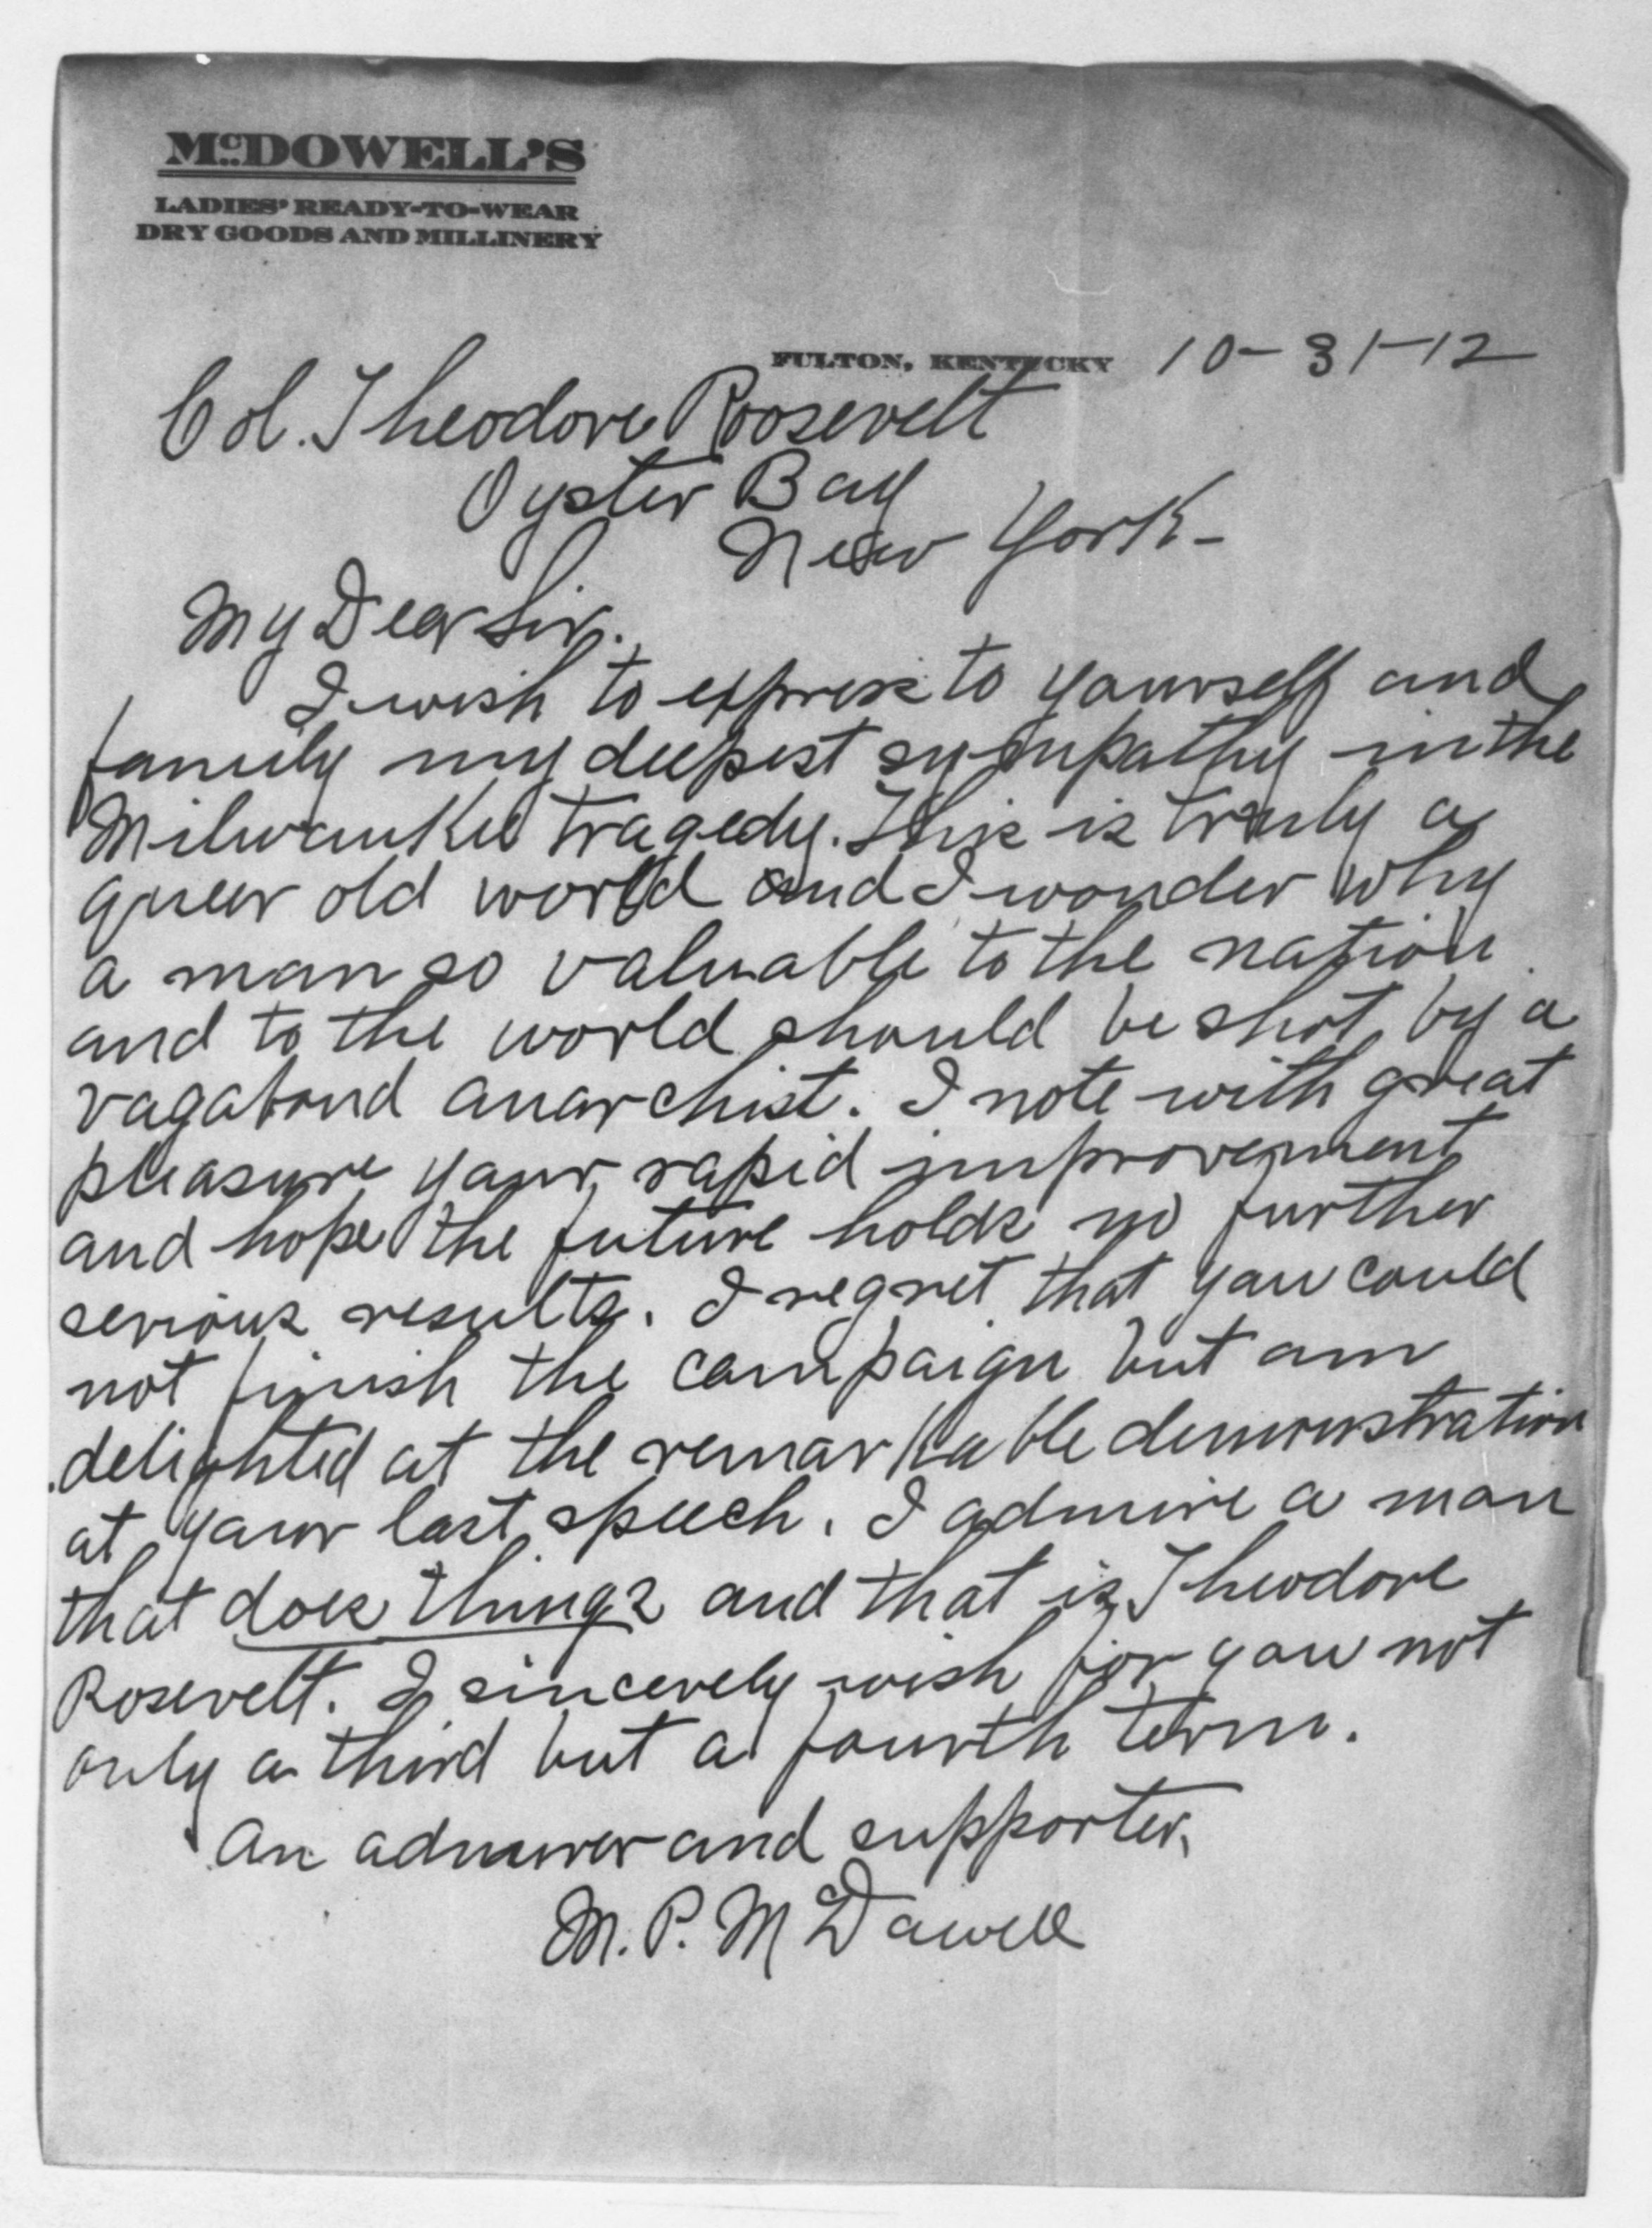 McDOWELL'S
LADIES' READY-TO-WEAR
DRY GOODS AND MILLINERY
FULTON, KENTUCKY 10-31-12
Col. Theodore Roosevelt
Oyster Bay
New York-
My Dear Sir.
I wish to express to yourself and
family my deepest sympathy in the
Milwaukee tragedy. This is truly a
queer old world and I wonder why
a man so valuable to the nation
and to the world should be shot by a
vagabond anarchist. I note with great
pleasure your rapid improvement
and hope the future holds no further
serious results. I regret that you could
not finish the campaign but am
delighted at the remarkable demonstration
at your last speech. I admire a man
that does things and that is Theodore
Rosevelt. I sincerely wish for you not
only a third but a fourth term.
An admirer and supporter,
M. P. McDowell